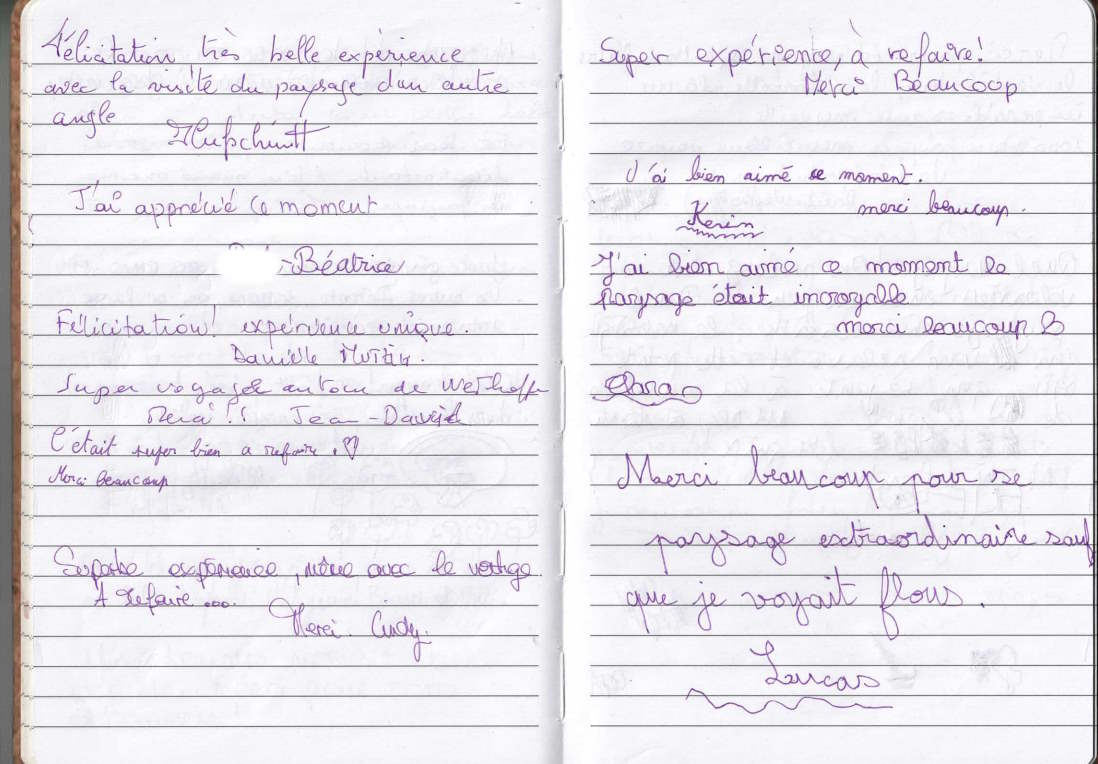 Félicitation très belle expérience
avec la visite du paysage d'un autre
angle
J'ai apprécié ce moment
Béatrice
Félicitation! expérience unique.
Danielle
Super voyage autour de
Merci !! Jean-David
C'était super bien a refaire. ♡
Merci beaucoup
Superbe expérience, même avec le vertige.
A refaire ...
Merci. Cindy.
Super expérience, à refaire!
Merci Beaucoup
J'ai bien aimé se moment.
merci beaucoup.
J'ai bien aimé ce moment le
paysage était incroyable
merci beaucoup
Clara
Merci beaucoup pour se
paysage extraordinaire sauf
que je voyait flous.
Lucas